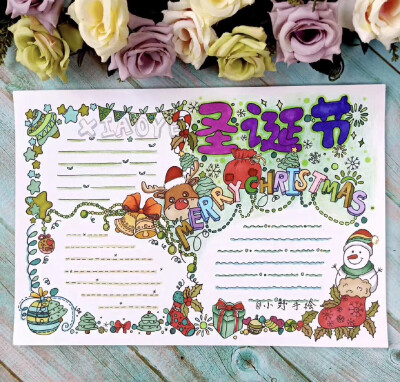 XIAOYE
圣诞节
MERRY CHRISTMAS
小野手绘